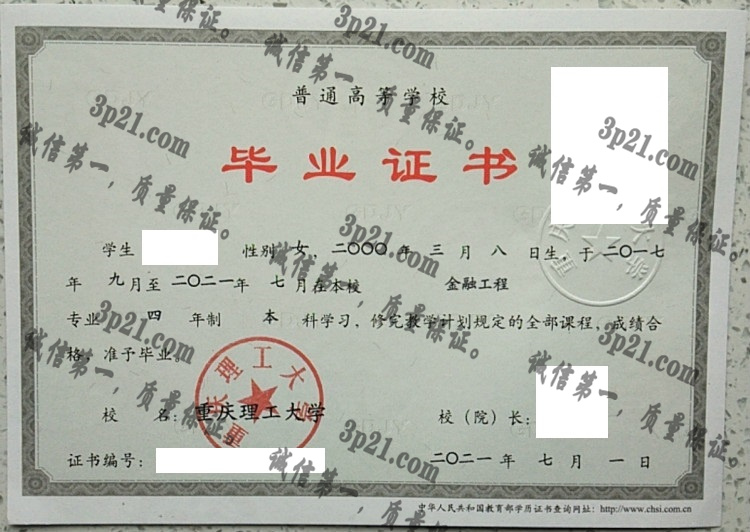 普通高等学校
毕业证书
学生 性别 女 二〇〇〇年 三月 八 日生，于二〇一七
年 九月至 二〇二一年 七 月在本校 金融工程
专业 四 年制 本 科学习，修完教学计划规定的全部课程，成绩合
格，准予毕业。
重庆理工大学
校 名：重庆理工大学 校（院）长：
证书编号： 二〇二一年 七 月 一 日
中华人民共和国教育部学历证书查询网址：http://www.chsi.com.cn
3p21.com
诚信第一，质量保证。
3p21.com
诚信第一，质量保证。
3p21.com
诚信第一，质量保证。
3p21.com
诚信第一，质量保证。
3p21.com
诚信第一，质量保证。
3p21.com
诚信第一，质量保证。
3p21.com
诚信第一，质量保证。